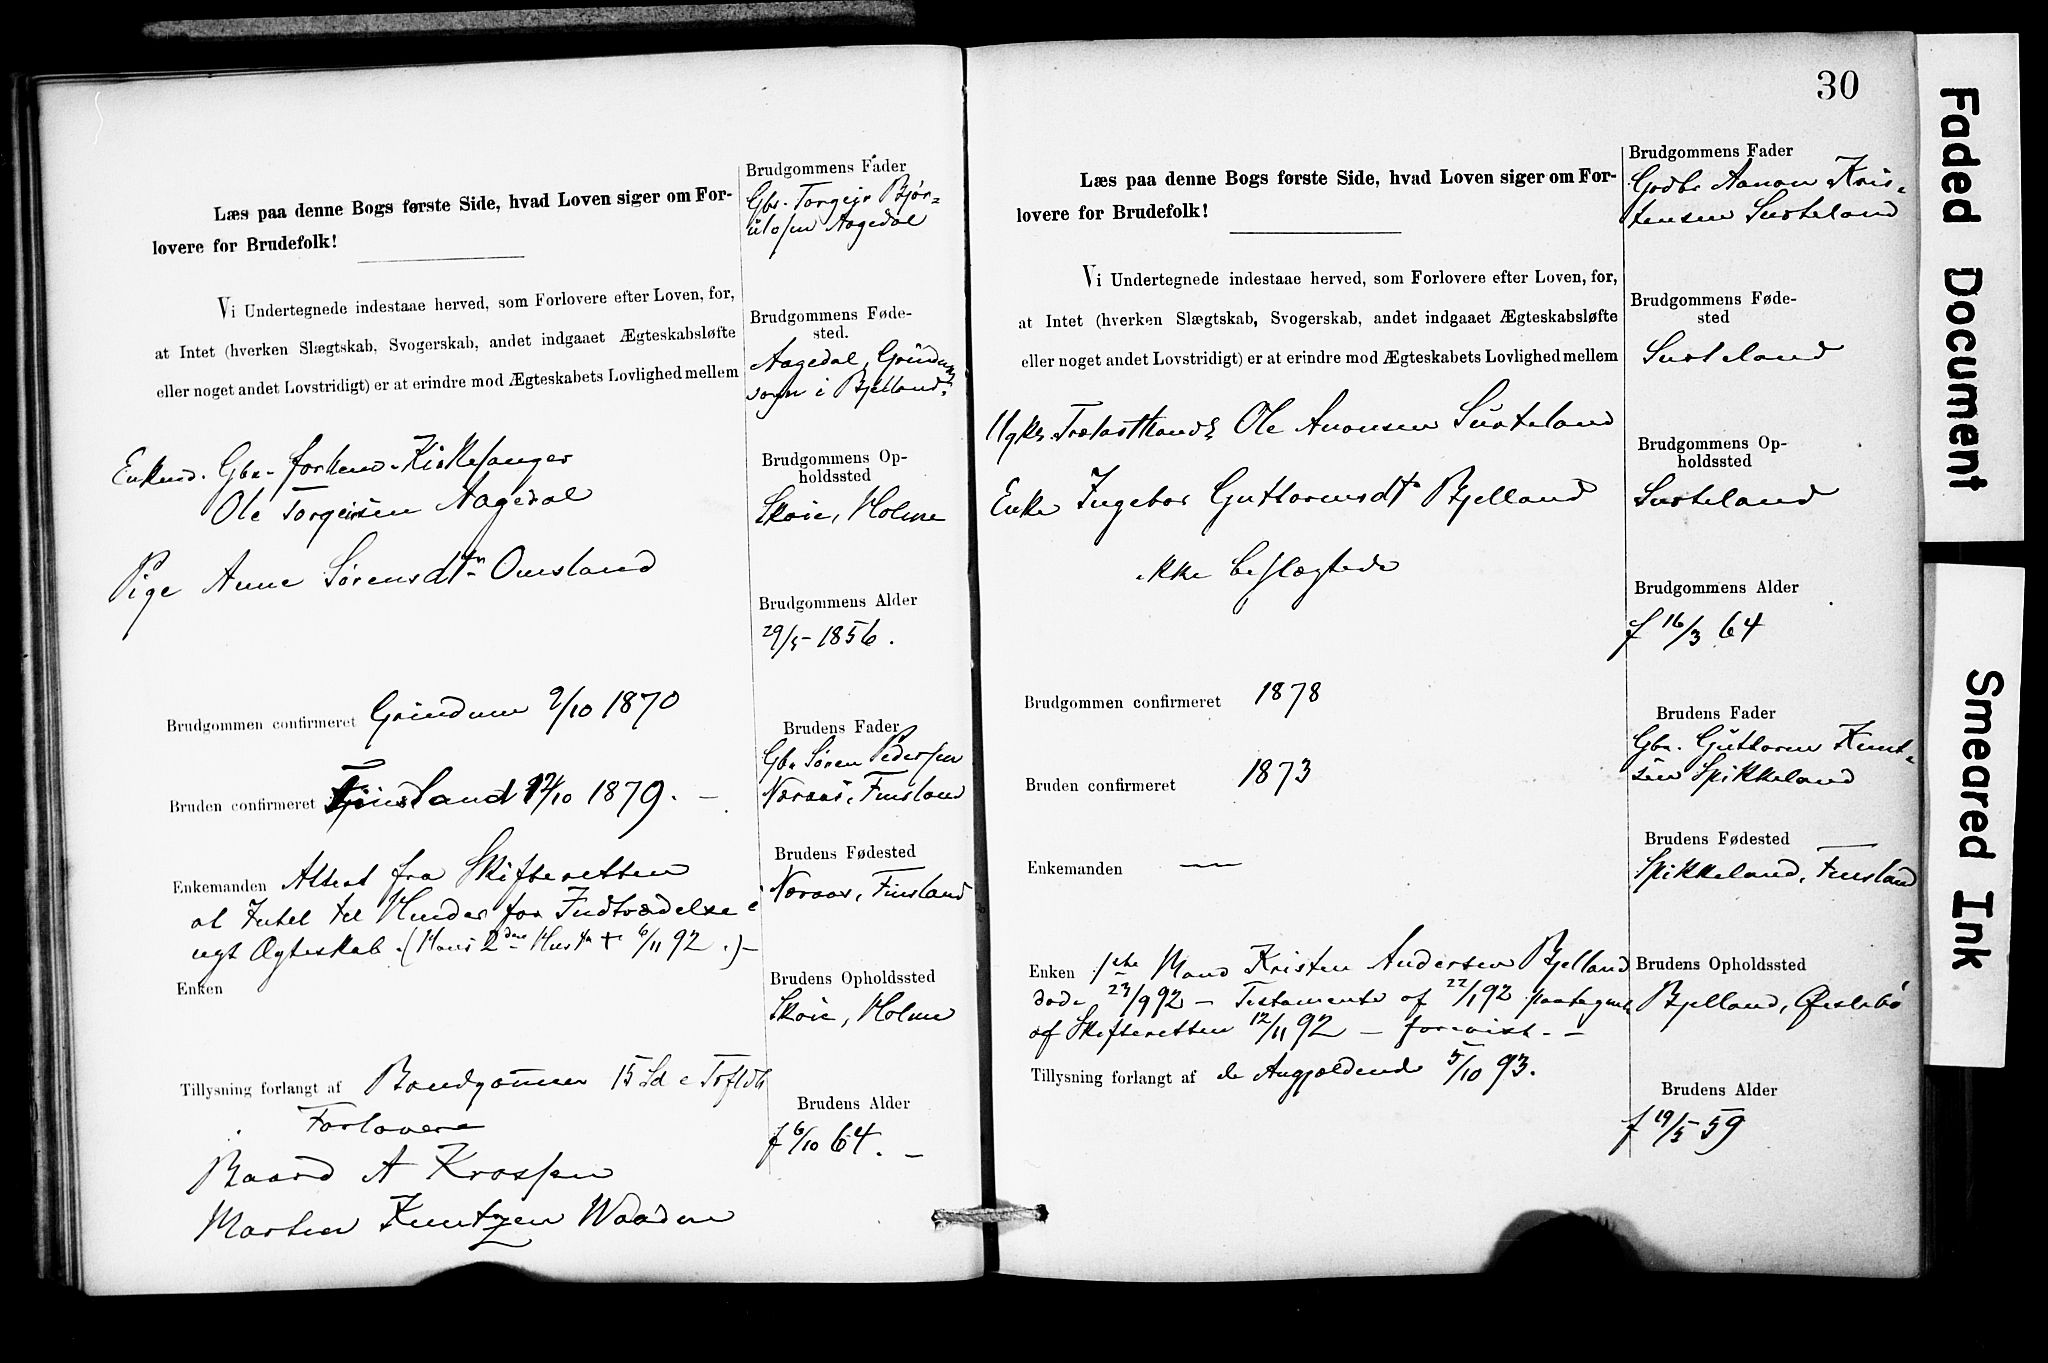 Læs paa denne Bogs første Side, hvad Loven siger om For-
lovere for Brudefolk!
Vi Undertegnede indestaae herved, som Forlovere efter Loven, for,
at Intet (hverken Slægtskab, Svogerskab, andet indgaaet Ægteskabsløfte
eller noget andet Lovstridigt) er at erindre mod Ægteskabets Lovlighed mellem
Enkemd. Gbr. forhenv. Kirkesanger
Ole Torgeirsen Aagedal
Pige Anne Sørensdtr Omsland
Brudgommen confirmeret Grindum 2/10 1870
Bruden confirmeret Finsland 12/10 1879. –
Enkemanden Attest fra Skifteretten
at Intet til Hinder for Indtrædelse i
nyt Ægteskab. (Hans 2den Hustr + 6/11 92.) –
Enken
Tillysning forlangt af Brudgommen 15 Sd e Trefdh
Forlovere
Baard A Krossen
Martin Kuntzen Waaden
Brudgommens Fader
Gbr. Torgeje Bjør-
ulosen Aagedal
Brudgommens Føde-
sted.
Aagedal, Grindum
sogn i Bjelland.
Brudgommens Op-
holdssted
Skoie, Holme
Brudgommens Alder
29/5 - 1856.
Brudens Fader
Gbr Sören Pedersen
Noraas, Finsland
Brudens Fødested
Noraas, Finsland
Brudens Opholdssted
Skoie, Holme
Brudens Alder
f 6/10 64. –
30
Læs paa denne Bogs første Side, hvad Loven siger om For-
lovere for Brudefolk!
Vi Undertegnede indestaae herved, som Forlovere efter Loven, for,
at Intet (hverken Slægtskab, Svogerskab, andet indgaaet Ægteskabsløfte
eller noget andet Lovstridigt) er at erindre mod Ægteskabets Lovlighed mellem
Ugkr. Trælasthandl Ole Aanonsen Surteland
Enke Ingebor Guttormsdtr Bjelland
ikke beslægtede
Brudgommen confirmeret 1878
Bruden confirmeret 1873
Enkemanden —
Enken 1ste Mand Kristen Andersen Bjelland
døde 23/9 92 – Testamente af 22/1 92 paategnet
af Skifteretten 12/11 92 – forevist. –
Tillysning forlangt af de Angjældende 5/10 93.
Brudgommens Fader
Grdbr Aanon Kris-
tensen Surteland
Brudgommens Føde-
sted
Surteland
Brudgommens Op-
holdssted
Surteland
Brudgommens Alder
f 16/3 64
Brudens Fader
Gbr. Guttorm Knut-
sen Spikkeland
Brudens Fødested
Spikkeland, Finsland
Brudens Opholdssted
Bjelland, Øislebø
Brudens Alder
f 19/5 59
Faded Document
Smeared Ink